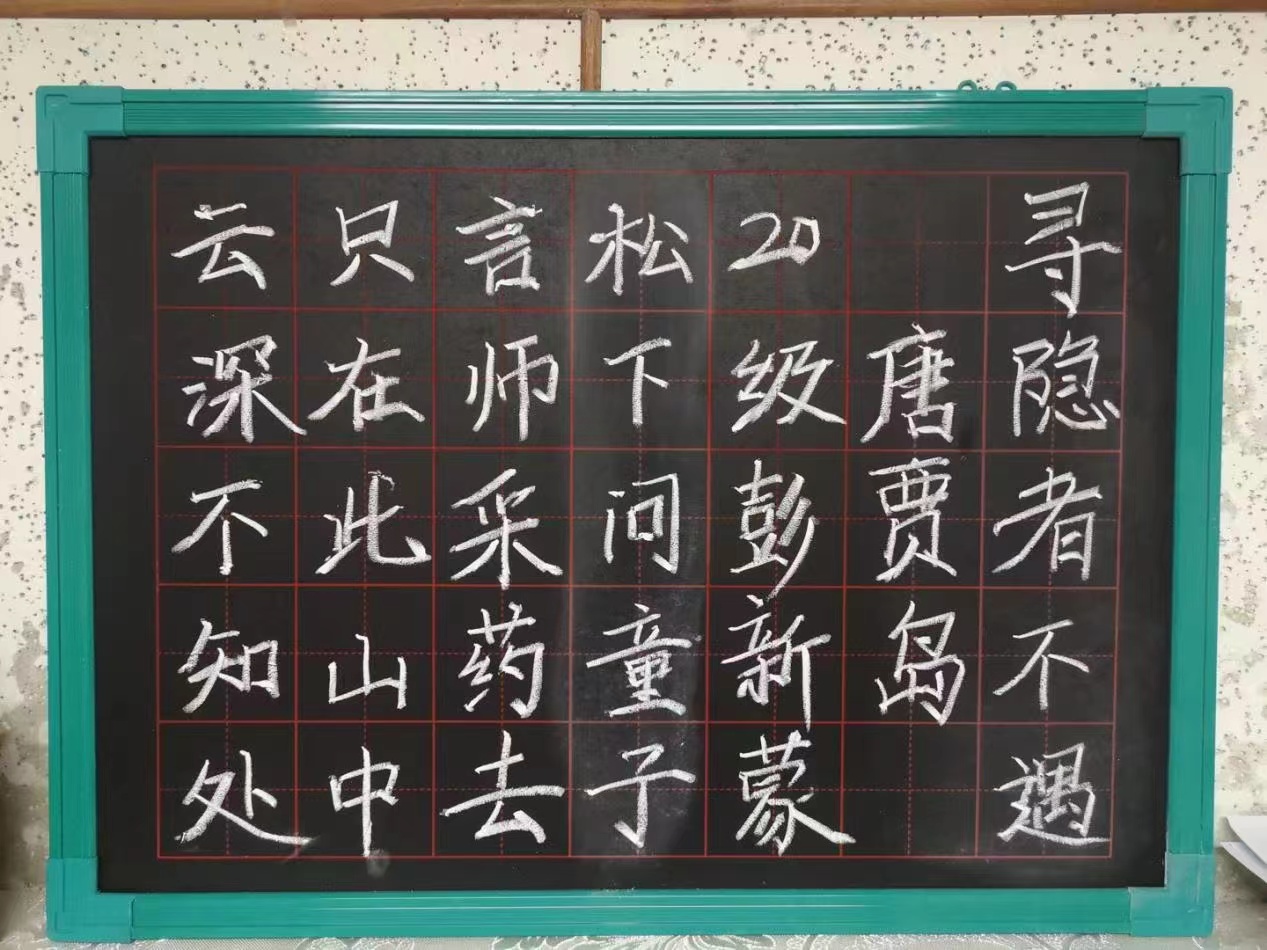 寻隐者不遇
唐贾岛
20级彭新蒙
松下问童子
言师采药去
只在此山中
云深不知处